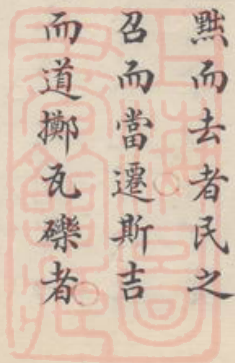 黜而去者民之
召而當遷斯吉
而道擲瓦礫者